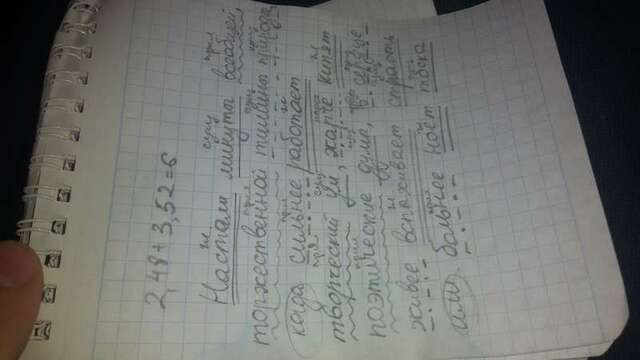 2,48+3,52=6
гл сущ прил
Настали минуты всеобщей
прил сущ сущ
торжественной тишины природы
когда сильнее работает
прил сущ
творческий ум, жарче кипят
прил
поэтические думы, в сердце
живее вспыхивает страсть
или больнее ноет тоска